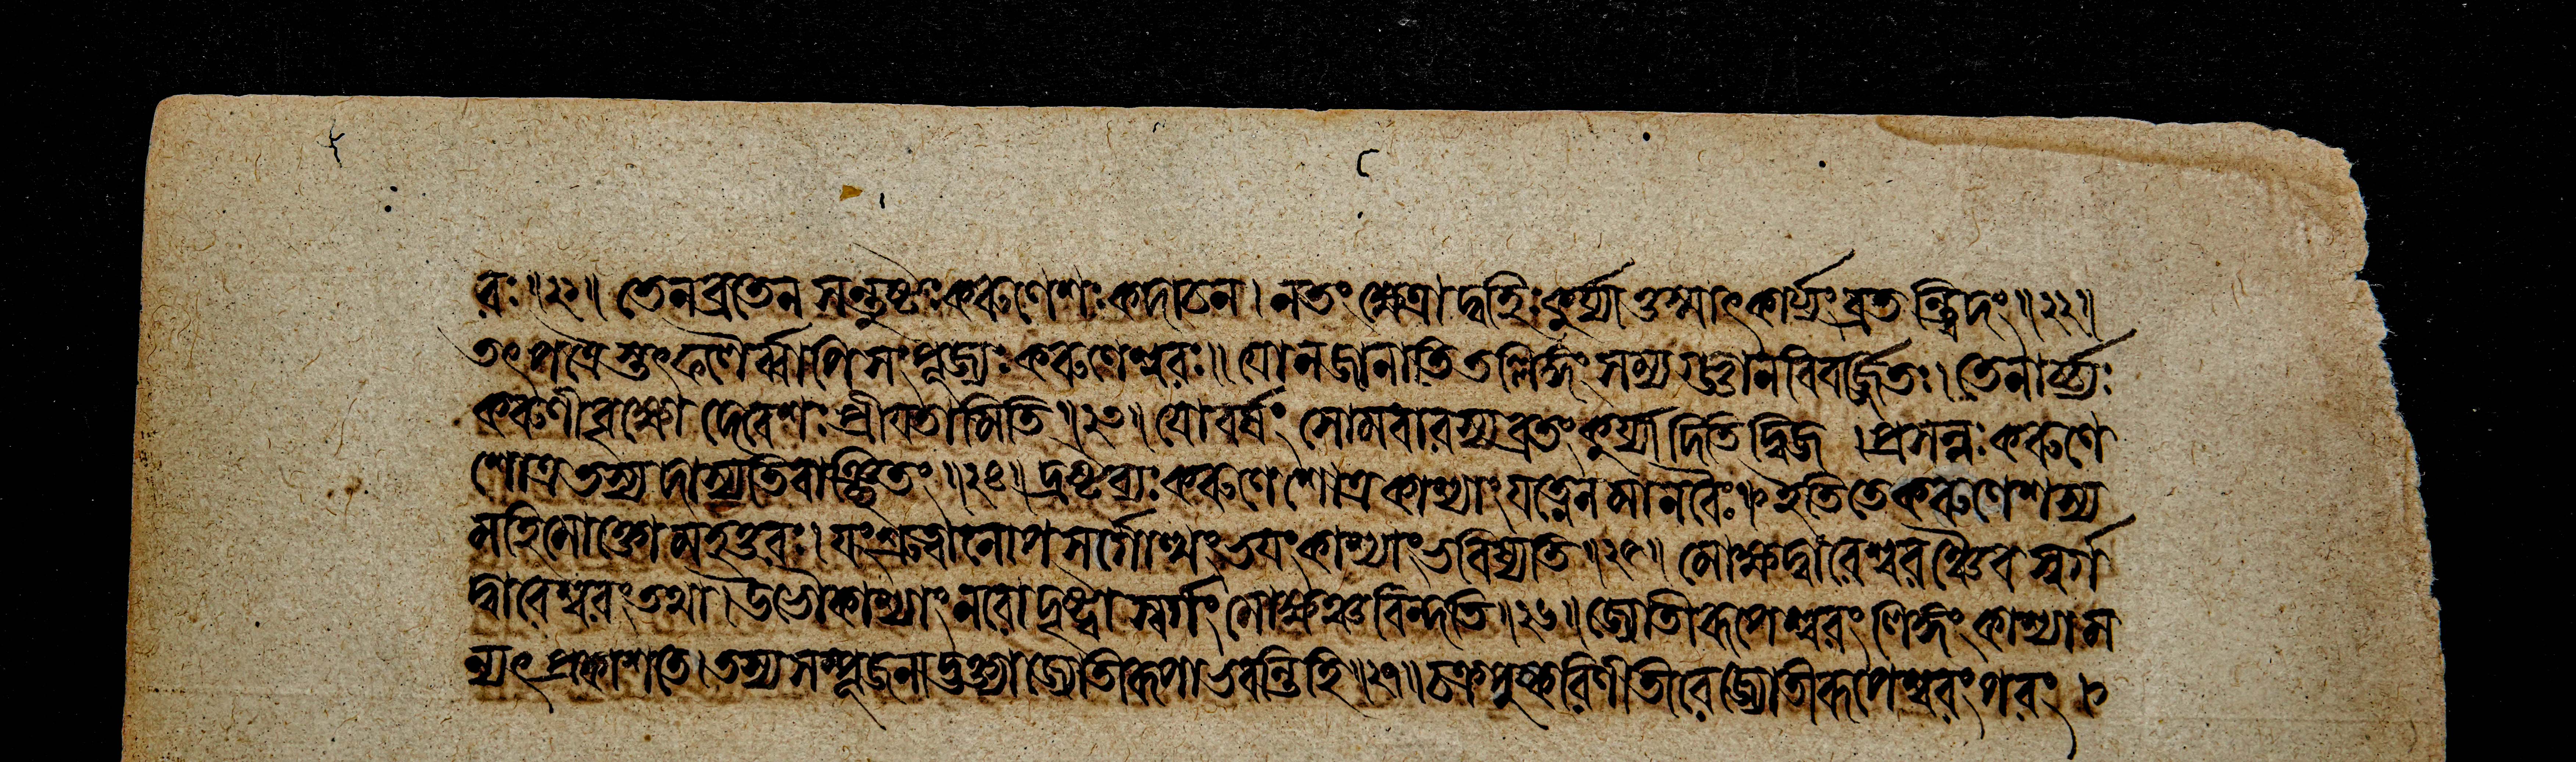 রঃ॥২১॥ তেনব্রতেন সন্তুষ্টঃকরুণেশঃকদাচন। নতং ক্ষেত্রাদ্বহিঃকুর্য্যাত্তস্মাৎকার্য্যংব্রতন্ত্বিদং॥২২॥
তৎপত্রৈস্তৎফলৈর্ব্বাপিসংপূজ্যঃকরুণেশ্বরঃ॥ যোনজানাতিতল্লিঙ্গং সম্যগ্জ্ঞানবিবর্জ্জিতঃ। তেনার্চ্চ্যঃ
করুণীবৃক্ষো দেবেশঃপ্রীয়তামিতি॥২৩॥ যোবর্ষং সোমবারস্যব্রতংকুর্য্যাদিতিদ্বিজ। প্রসন্নঃকরুণে
শোত্রতস্যদাস্যতিবাঞ্ছিতং॥২৪॥ দ্রষ্টব্যঃকরুণেশোত্রকাশ্যাংযত্নেনমানবৈঃ। ইতিতেকরুণেশস্য
মহিমোক্তোমহত্তরঃ। যংশ্রুত্বানোপসর্গোত্থংভয়ংকাশ্যাংভবিষ্যতি॥২৫॥ মোক্ষদ্বারেশ্বরঞ্চৈব স্বর্গ
দ্বারেশ্বরংতথা। উভৌকাশ্যাংনরোদৃষ্ট্বা স্বর্গং মোক্ষঞ্চবিন্দতি॥২৬॥ জ্যোতীরূপেশ্বরং লিঙ্গংকাশ্যাম
ন্যৎপ্রকাশতে। তস্যসম্পূজনাদ্ভক্ত্যাজ্যোতীরূপাভবন্তিহি॥২৭॥ চক্রপুষ্করিণীতীরেজ্যোতীরূপেশ্বরংপরং।